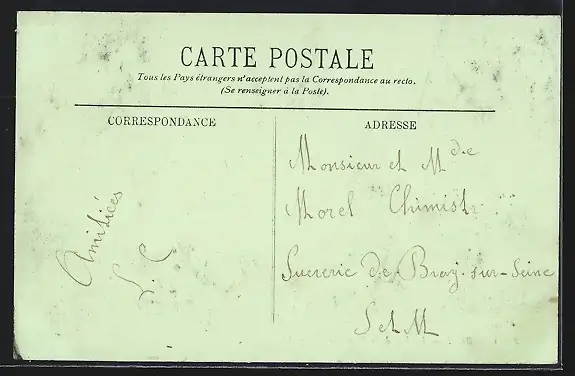 CARTE POSTALE
Tous les Pays étrangers n'acceptent pas la Correspondance au recto.
(Se renseigner à la Poste).
CORRESPONDANCE
Amitiées
L. C
ADRESSE
Monsieur et Mde
Morel Chimiste
Sucrerie de Bray-sur-Seine
S et M